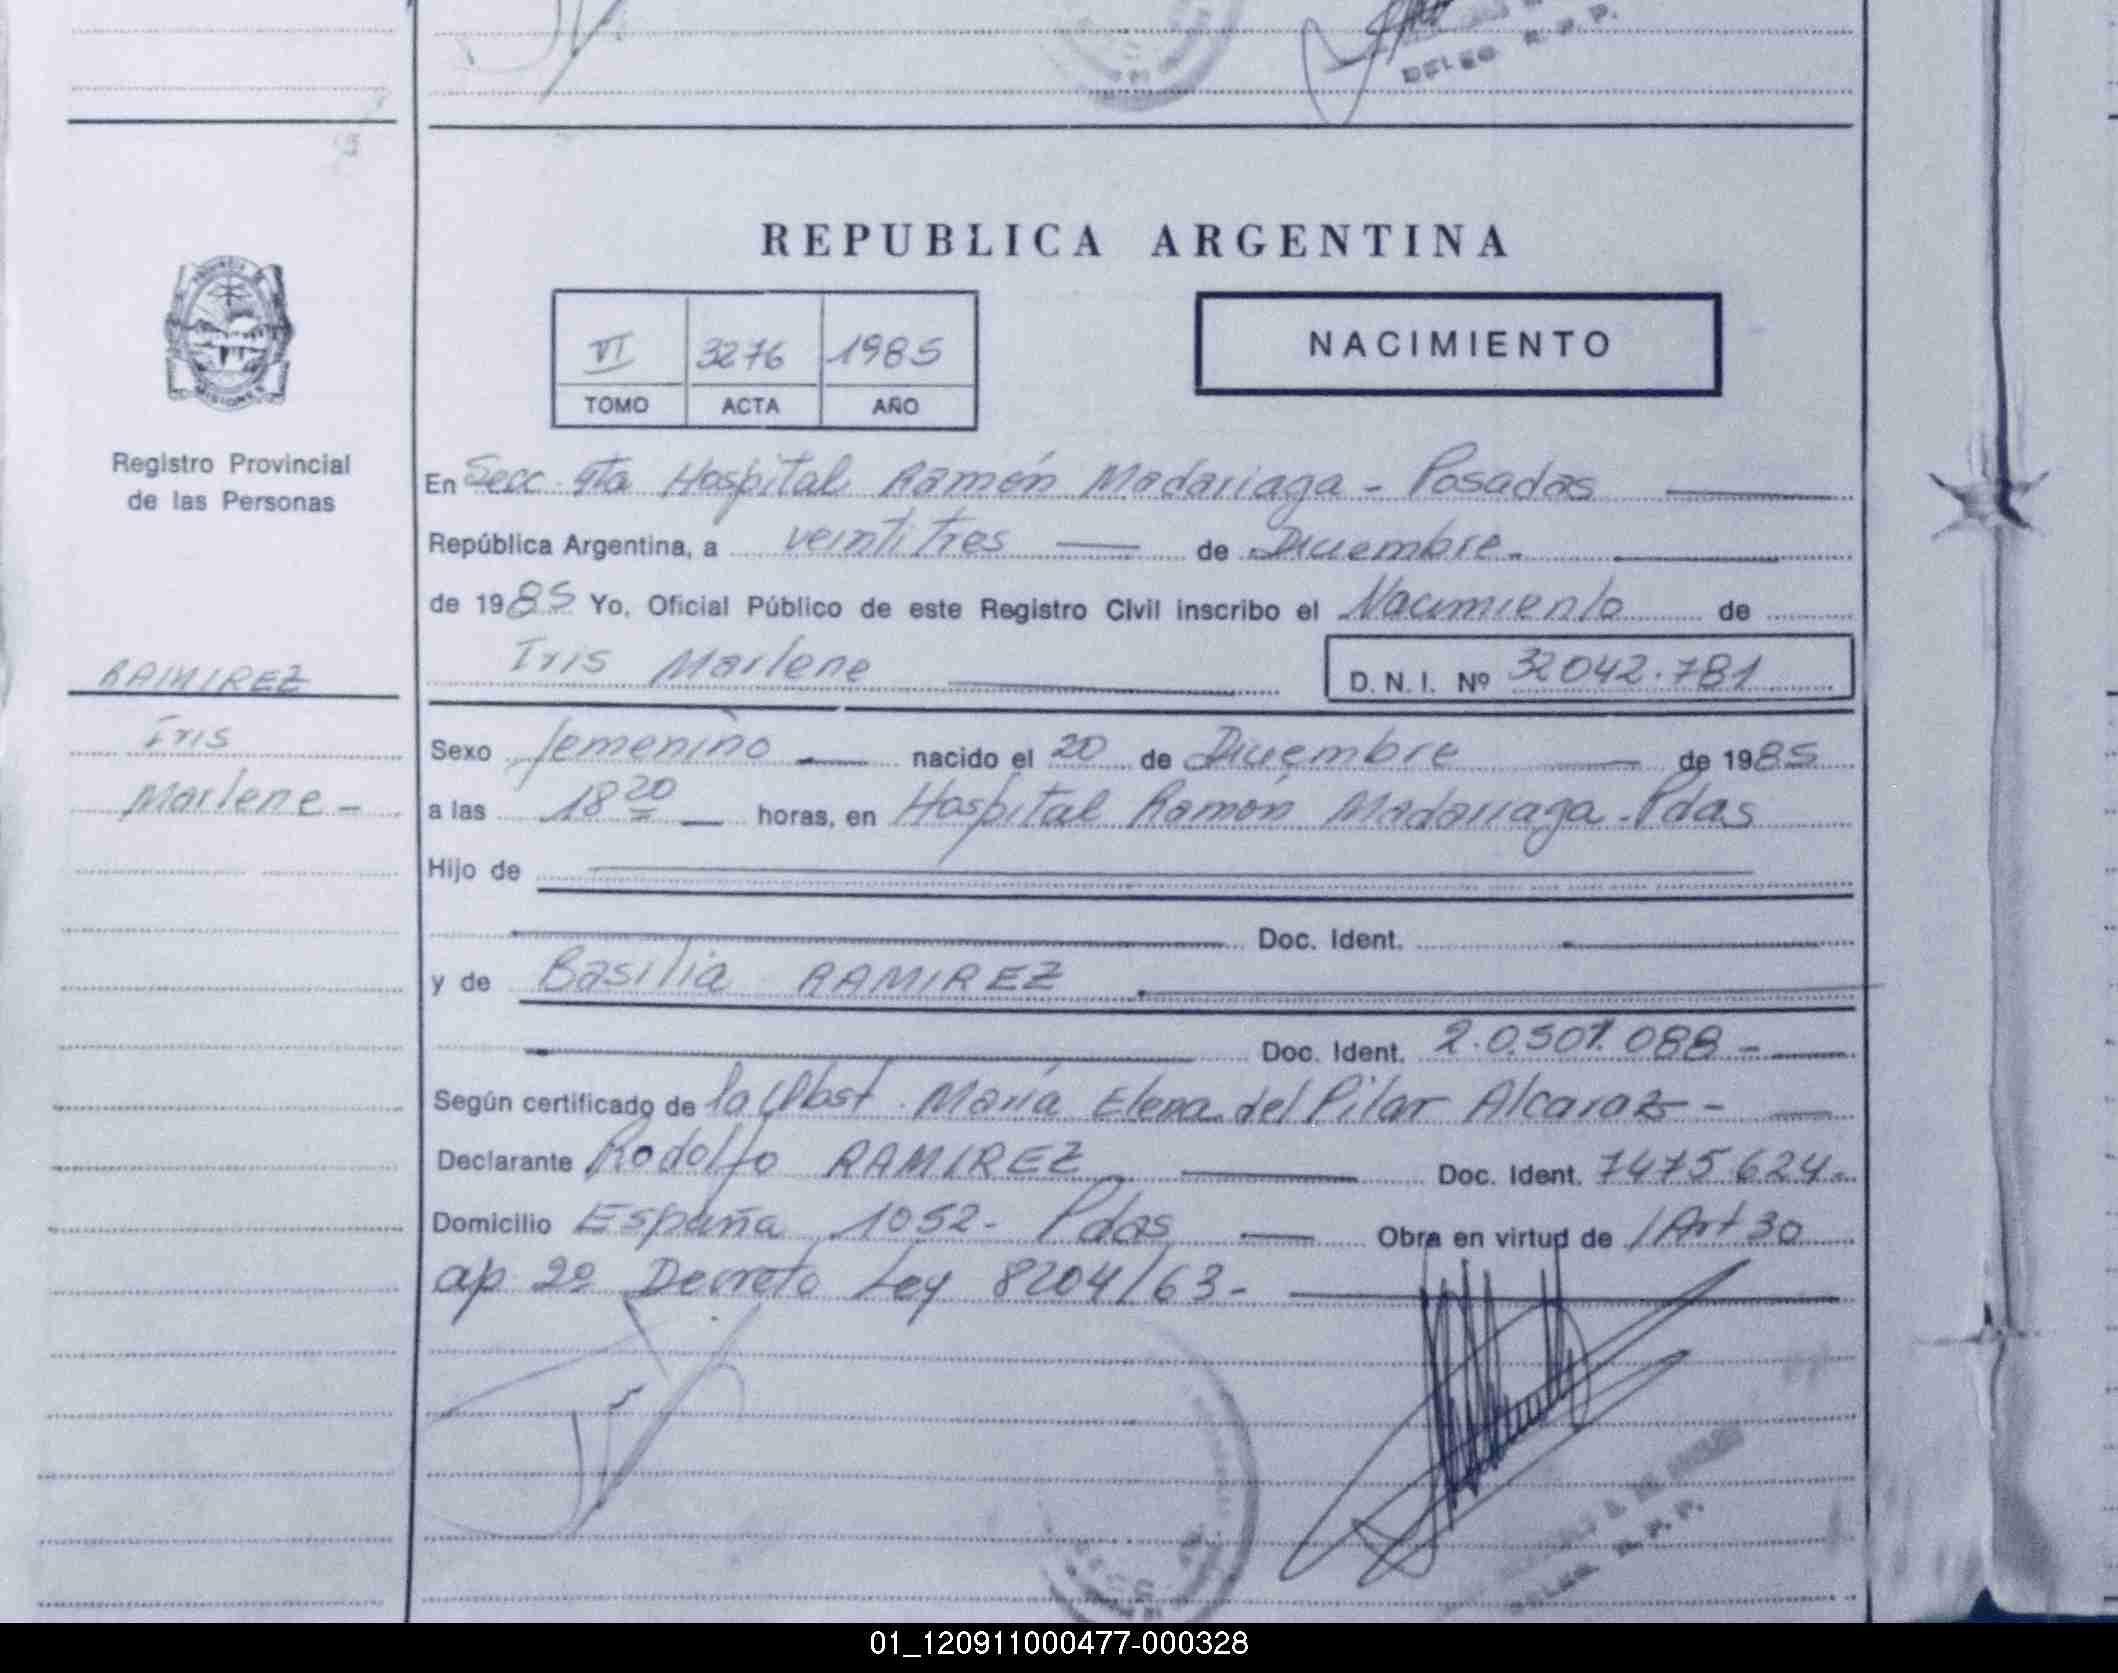 DELEG R. P. P.
REPUBLICA ARGENTINA
VI 3276 1985
TOMO ACTA AÑO
NACIMIENTO
Registro Provincial
de las Personas
RAMIREZ
Iris
Marlene -
En Secc 4ta Hospital Ramón Madariaga - Posadas
República Argentina, a veintitres de Diciembre.
de 1985 Yo, Oficial Público de este Registro Civil inscribo el Nacimiento de
Iris Marlene D. N. I. Nº 32042.781
Sexo femenino nacido el 20 de Diciembre de 1985
a las 18 20 horas, en Hospital Ramón Madariaga - Pdas
Hijo de
Doc. Ident.
y de Basilia RAMIREZ
Doc. Ident. 2.0.507.088 -
Según certificado de la Obst. María Elena del Pilar Alcaraz -
Declarante Rodolfo RAMIREZ Doc. Ident. 7475.624-
Domicilio España 1052- Pdas Obra en virtud de /Art 30
ap 2º Decreto Ley 8204/63-
DELEG R. P. P.
01_120911000477-000328